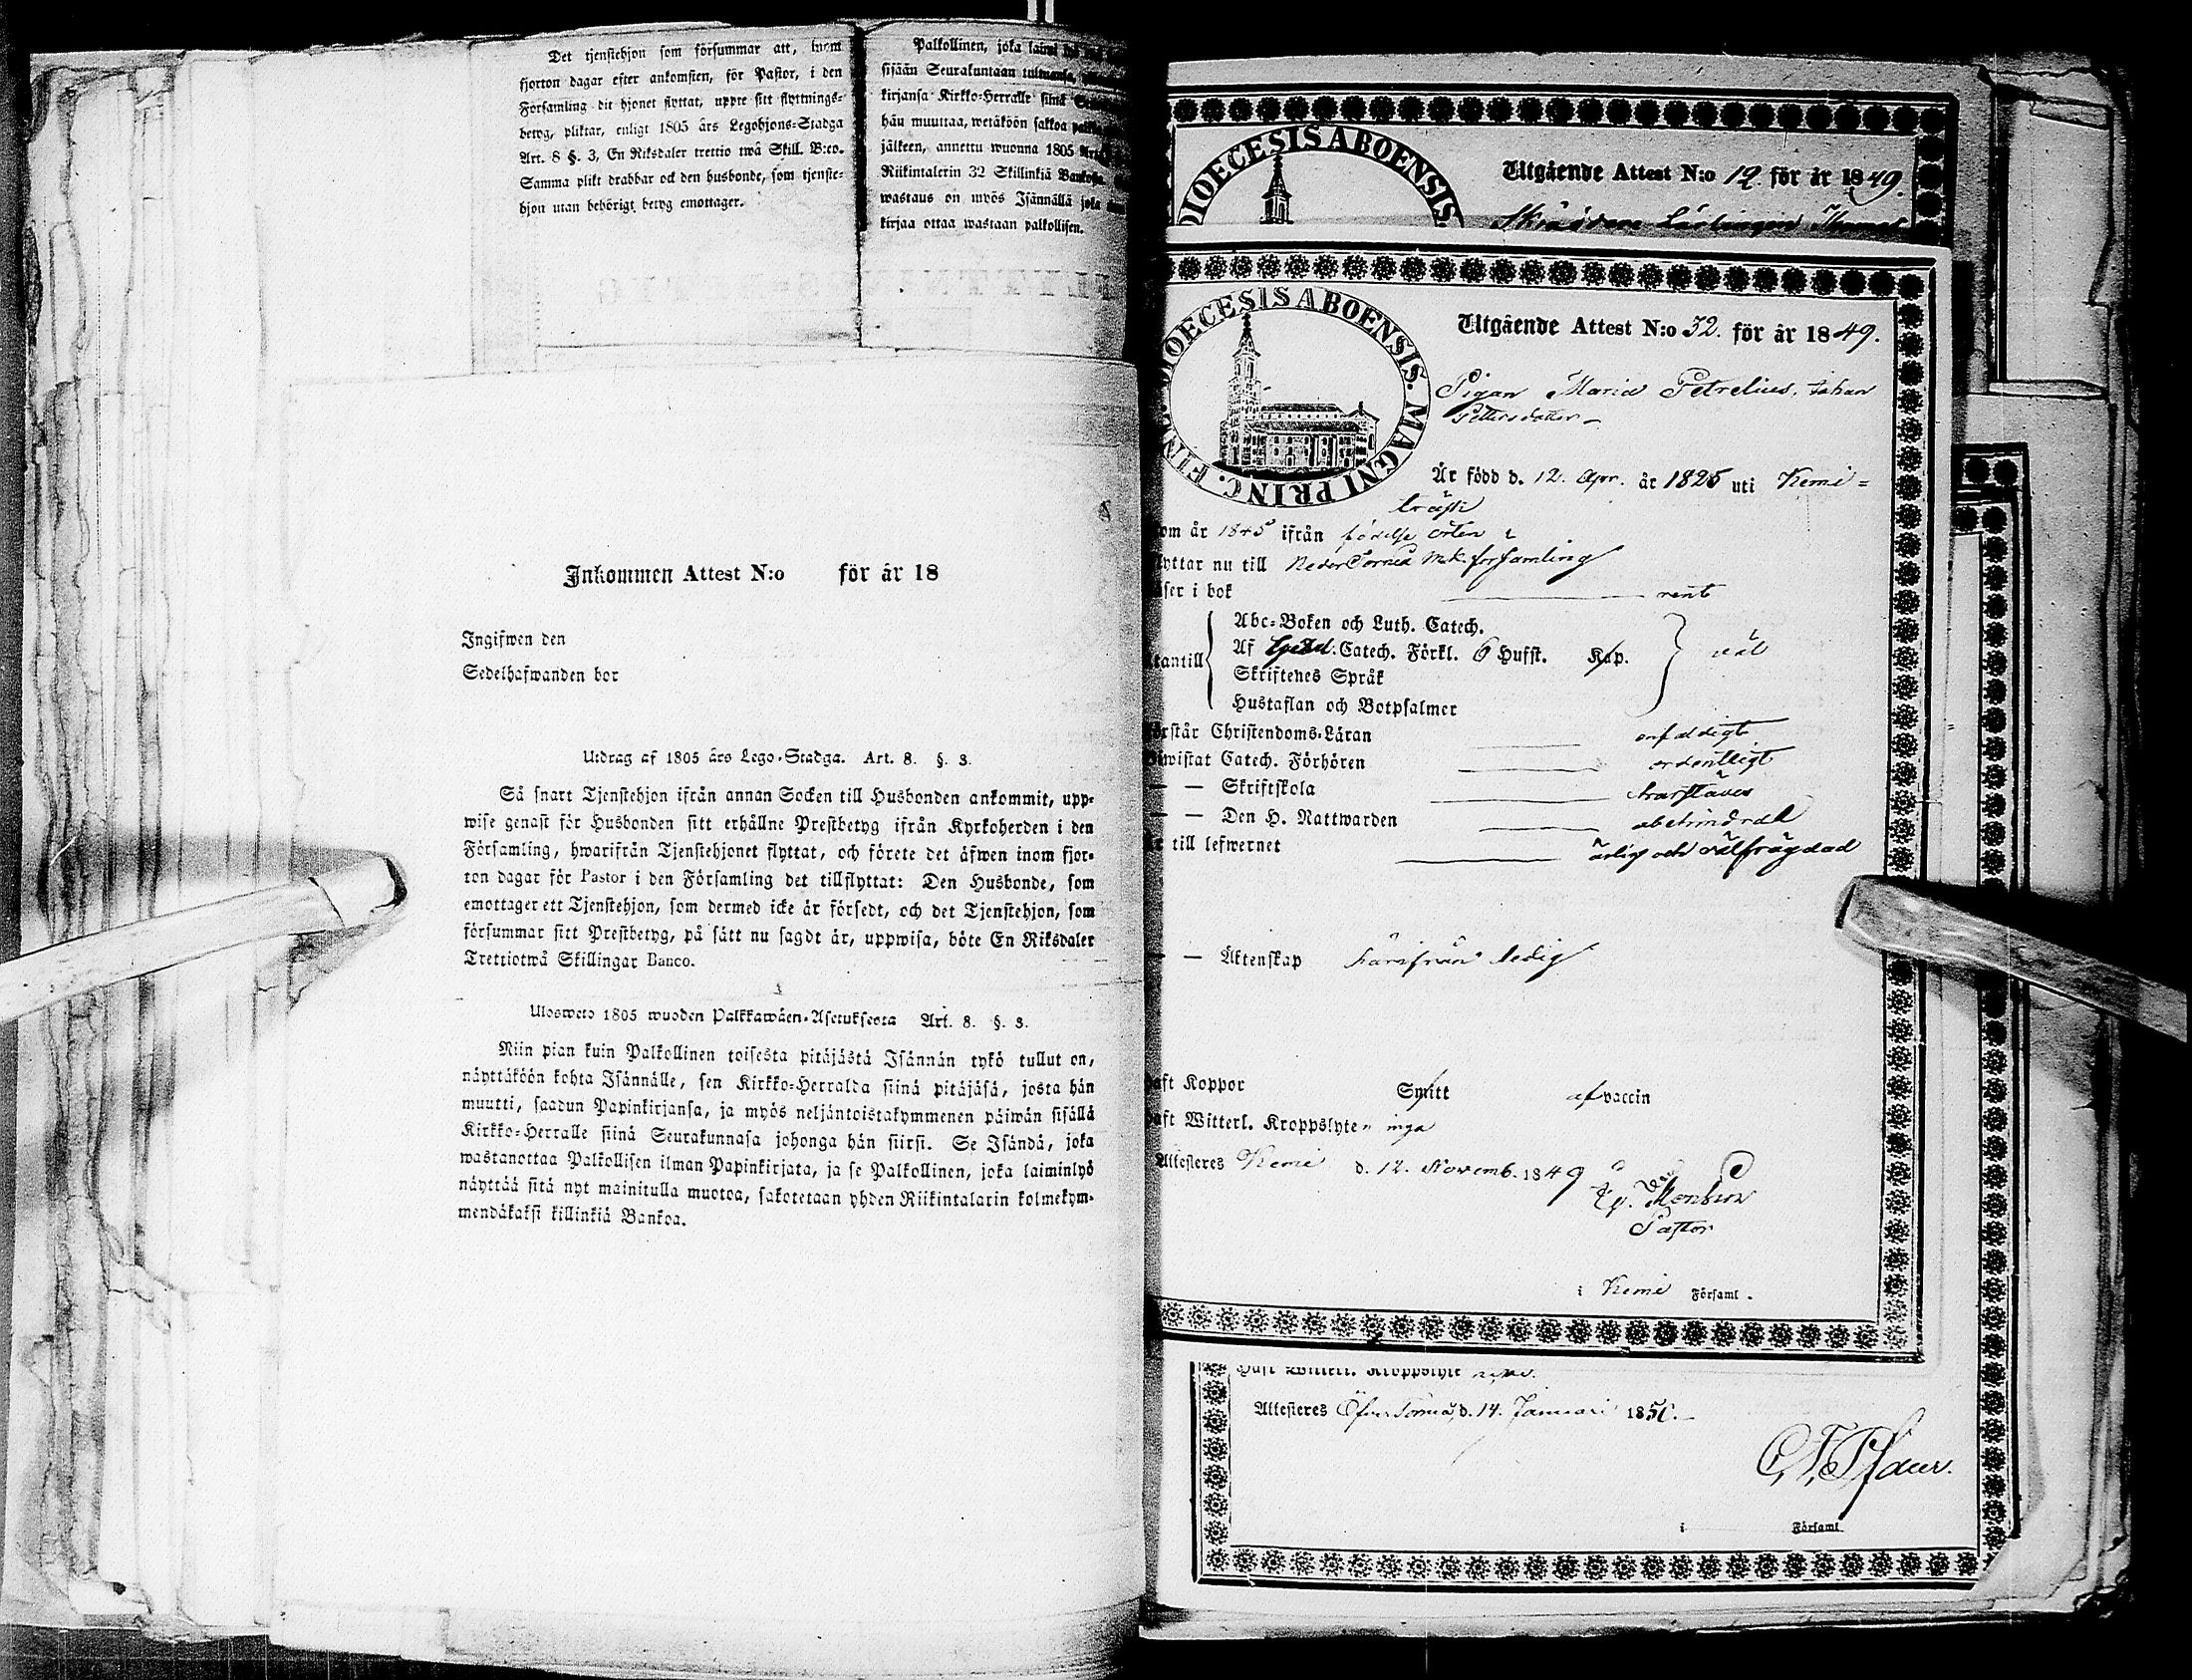 Det tjenstehjon som försummar att, inom
fjorton dagar efter ankomsten, för Pastor, i den
Församling dit hjonet flyttat, uppte sitt flyttnings-
betyg, pliktar, enligt 1805 års Legohjons-Stadga
Art. 8 §. 3, En Riksdaler trettio twå Skill. B:co.
Samma plikt drabbar ock den husbonde, som tjenste-
hjon utan behörigt betyg emottager.
Palkollinen, joka
sisään Seurakuntaan tultuansa,
kirjansa Kirkko-Herralle siinä
hän muuttaa, wetäköön sakkoa
jälkeen, annettu wuonna 1805
Riikintalerin 32 Skillinkiä Bankossa
wastaus on myös Isännällä joka
kirjaa ottaa wastaan palkollisen.
Inkommen Attest N:o för år 18
Ingifwen den
Sedelhafwanden bor
Utdrag af 1805 års Lego-Stadga. Art. 8. §. 3.
Så snart Tjenstehjon ifrån annan Socken till Husbonden ankommit, upp-
wise genast för Husbonden sitt erhållne Prestbetyg ifrån Kyrkoherden i den
Församling, hwarifrån Tjenstehjonet flyttat, och förete det äfwen inom fjor-
ton dagar för Pastor i den Församling det tillflyttat: Den Husbonde, som
emottager ett Tjenstehjon, som dermed icke är försedt, och det Tjenstehjon, som
försummar sitt Prestbetyg, på sätt nu sagdt är, uppwisa, böte En Riksdaler
Trettiotwå Skillingar Banco.
Ulosweto 1805 wuoden Palkkawäen-Asetuksesta Art. 8. §. 3.
Niin pian kuin Palkollinen toisesta pitäjästä Isännän tykö tullut on,
näyttäköön kohta Isännälle, sen Kirkko-Herralda siinä pitäjäsä, josta hän
muutti, saadun Papinkirjansa, ja myös neljäntoistakymmenen päiwän sisällä
Kirkko-Herralle siinä Seurakunnasa johonga hän siirsi. Se Isändä, joka
wastanottaa Palkollisen ilman Papinkirjata, ja se Palkollinen, joka laiminlyö
näyttää sitä nyt mainitulla muotoa, sakotetaan yhden Riikintalarin kolmekym-
mendäkaksi killinkiä Bankoa.
DIOECESIS ABOENSIS.
Utgående Attest N:o 12. för år 1849.
Skräddare Lärlingen
DIOECESIS ABOENSIS. MAGNI PRINC. FINL.
Utgående Attest N:o 52. för år 1849.
Pigan Maria Petrelius, Johan
Pettersdotter
Är född d. 12. Apr. år 1825 uti Kemi=
träsk
om år 1845 ifrån födelse orten
yttar nu till Neder Torneå m.k. församling
äser i bok rent
tantill
Abc-Boken och Luth. Catech.
Af Catech. Förkl. 6 Hufst. Kap. väl
Skriftenes Språk
Hustaflan och Botpsalmer
örstår Christendoms-Läran enfaldigt
iwistat Catech. Förhören ordentligt
— — Skriftskola
— — Den H. Nattwarden obehindrad
Är till lefwernet ärlig och välfrägdad
— — Äktenskap härifrån ledig
aft Koppor Smitt af vaccin
aft Witterl. Kroppslyten inga
Attesteres Kemi d. 12. Novemb. 1849
Pastor
i Kemi Församl.
Haft Witterl. Kroppslyte
Attesteres Öfver Torneå, d. 14. Januari 1850.
i Församl.